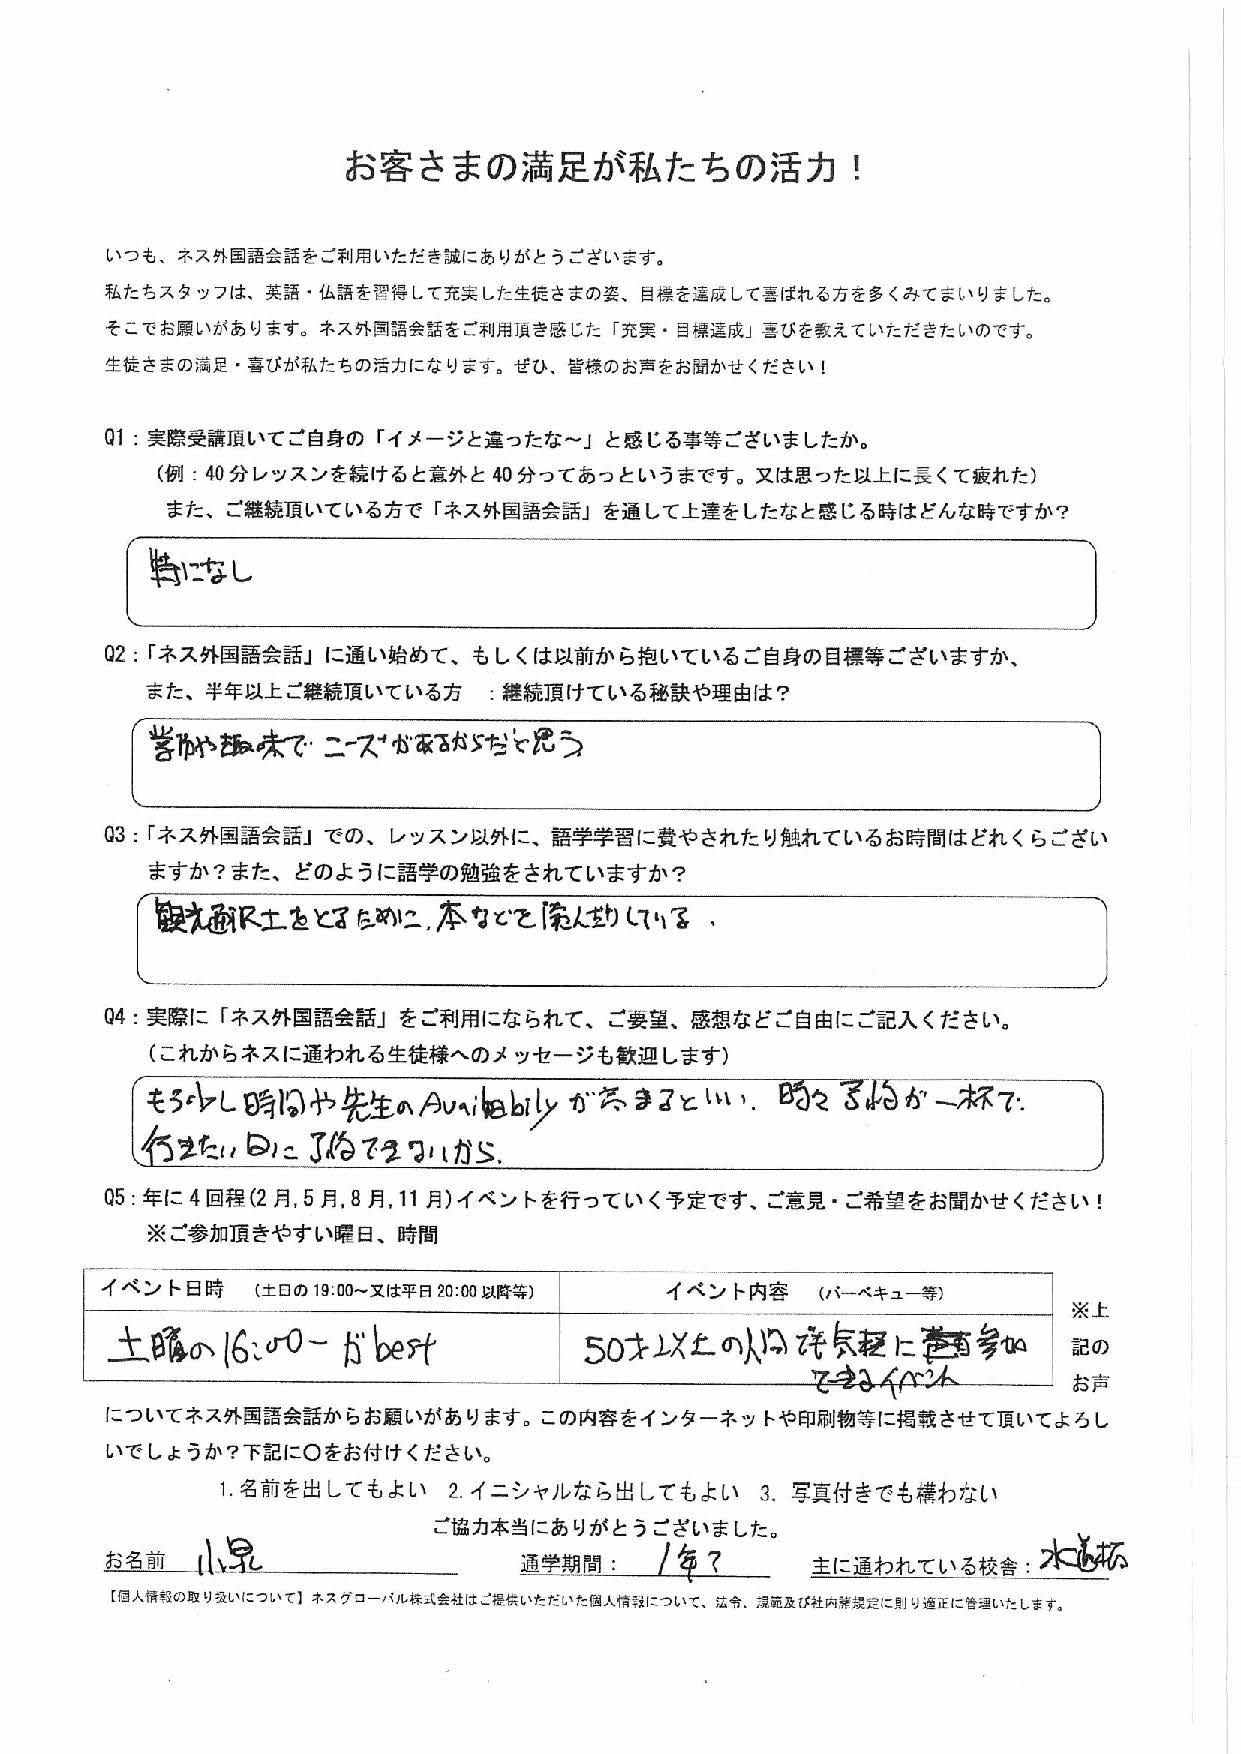 お客さまの満足が私たちの活力！
いつも、ネス外国語会話をご利用いただき誠にありがとうございます。
私たちスタッフは、英語・仏語を習得して充実した生徒さまの姿、目標を達成して喜ばれる方を多くみてまいりました。
そこでお願いがあります。ネス外国語会話をご利用頂き感じた「充実・目標達成」喜びを教えていただきたいのです。
生徒さまの満足・喜びが私たちの活力になります。ぜひ、皆様のお声をお聞かせください！
Q1：実際受講頂いてご自身の「イメージと違ったな～」と感じる事等ございましたか。
（例：40分レッスンを続けると意外と40分ってあっというまです。又は思った以上に長くて疲れた）
また、ご継続頂いている方で「ネス外国語会話」を通して上達をしたなと感じる時はどんな時ですか？
特になし
Q2：「ネス外国語会話」に通い始めて、もしくは以前から抱いているご自身の目標等ございますか、
また、半年以上ご継続頂いている方　：継続頂けている秘訣や理由は？
や趣味で ニーズがあるからだと思う
Q3：「ネス外国語会話」での、レッスン以外に、語学学習に費やされたり触れているお時間はどれくらござい
ますか？また、どのように語学の勉強をされていますか？
観光通訳士をとるために、本などを読んだりしている．
Q4：実際に「ネス外国語会話」をご利用になられて、ご要望、感想などご自由にご記入ください。
（これからネスに通われる生徒様へのメッセージも歓迎します）
もう少し時間や先生のAvailabilyが高まるといい．時々予約が一杯で．
行きたい日に予約できないから．
Q5：年に4回程(2月,5月,8月,11月)イベントを行っていく予定です、ご意見・ご希望をお聞かせください！
※ご参加頂きやすい曜日、時間
イベント日時　（土日の19:00～又は平日20:00以降等）　イベント内容　（バーベキュー等）
土曜の16:00ーがbest　50才以上の人間でも気軽に参加
できるイベント
※上
記の
お声
についてネス外国語会話からお願いがあります。この内容をインターネットや印刷物等に掲載させて頂いてよろし
いでしょうか？下記に〇をお付けください。
1.名前を出してもよい　2.イニシャルなら出してもよい　3．写真付きでも構わない
ご協力本当にありがとうございました。
お名前　小泉　通学期間：　1年？　主に通われている校舎：水道橋
【個人情報の取り扱いについて】ネスグローバル株式会社はご提供いただいた個人情報について、法令、規範及び社内諸規定に則り適正に管理いたします。